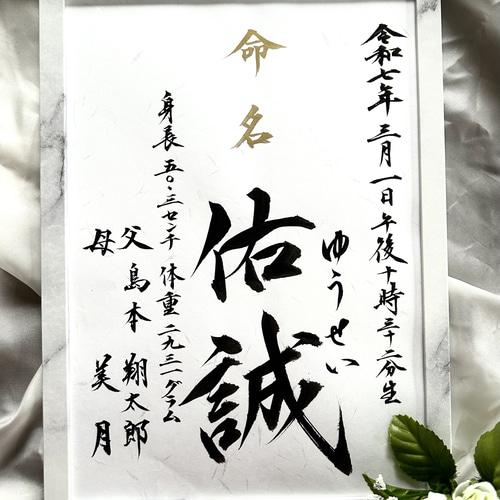 令和七年三月一日午後十時三十二分生
命名
佑誠
ゆうせい
身長五〇・三センチ 体重二九三一グラム
父 島本 翔太郎
母 美月